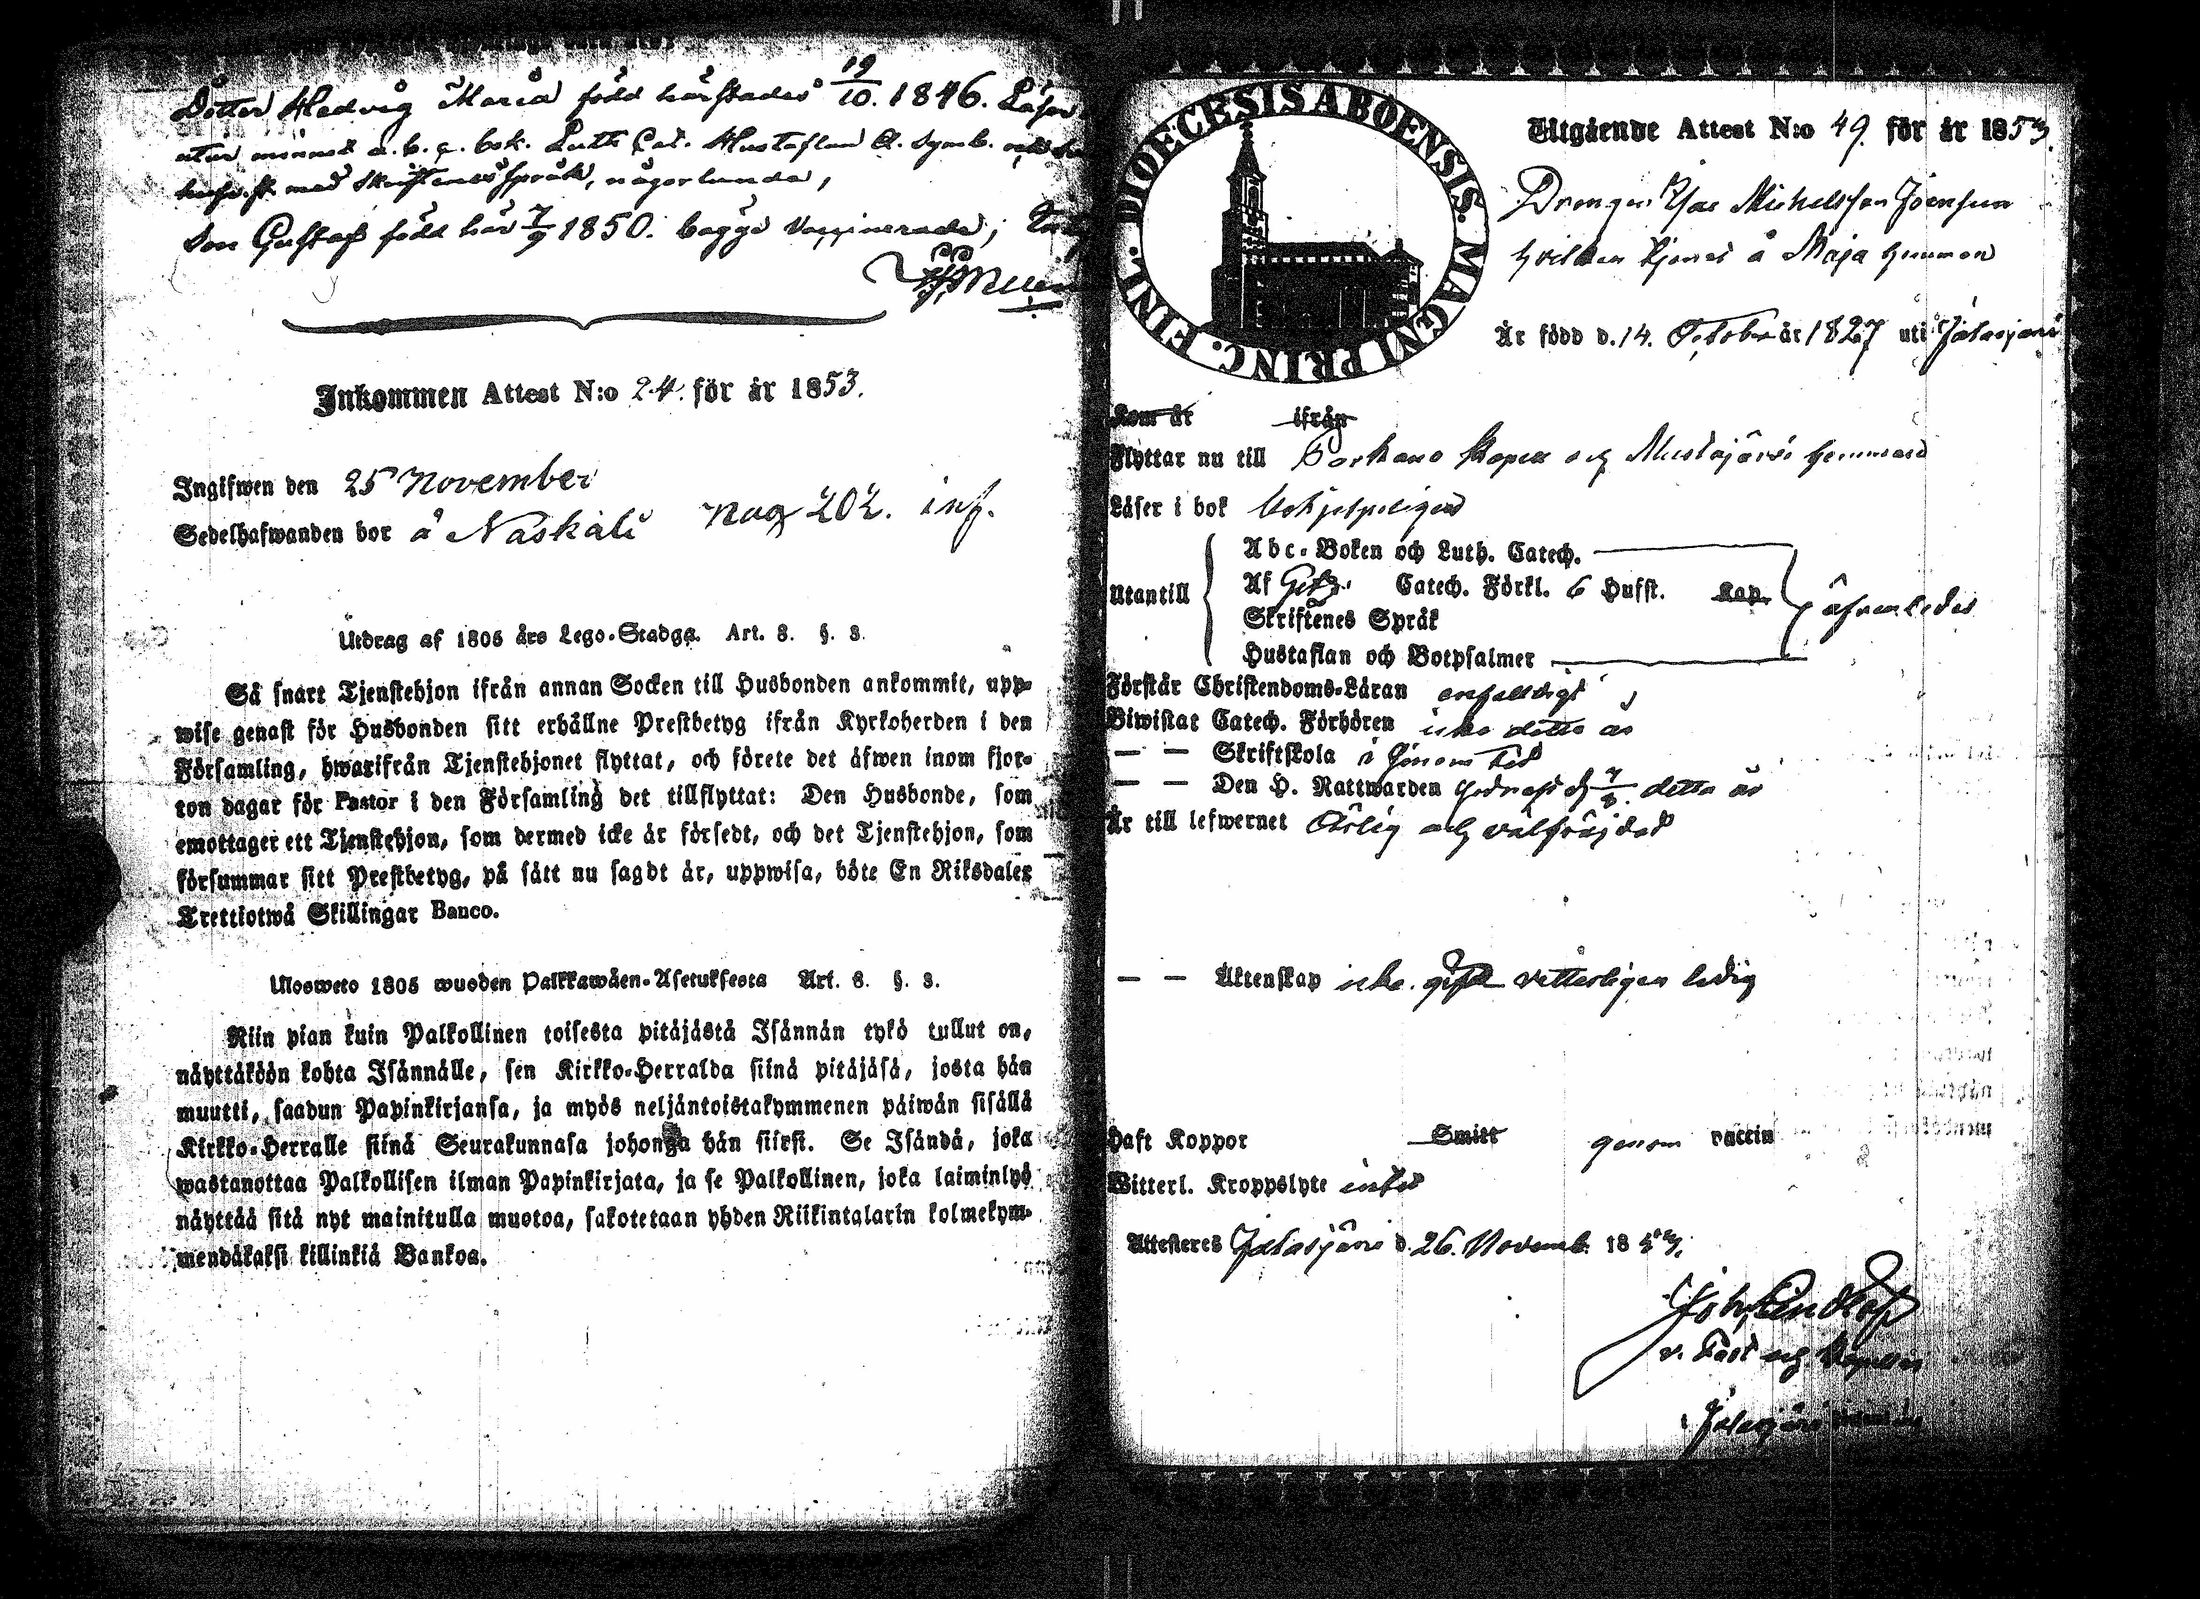 Dotter Hedvig Maria född härstädes 19/10. 1846. Läser
utur minnet a. b. c. bok. Luth Cat. Hustaflan A. Symb.
med Skriftenes språk, någorlunda,
Son Gustaf född här 7/9 1850. bägge vaccinerade;
Inkommen Attest N:o 24. för år 1853.
Ingifwen den 25 November
Sedelhafwanden bor å Naskali pag 202. inf.
Utdrag af 1805 års Lego-Stadga. Art. 8. §. 3.
Så snart Tjenstehjon ifrån annan Socken till Husbonden ankommit, upp-
wise genast för Husbonden sitt erhållne Prestbetyg ifrån Kyrkoherden i den
Församling, hwarifrån Tjenstehjonet flyttat, och förete det äfwen inom fjor-
ton dagar för Pastor i den Församling det tillflyttat: Den Husbonde, som
emottager ett Tjenstehjon, som dermed icke är försedt, och det Tjenstehjon, som
försummar sitt Prestbetyg, på sätt nu sagdt är, uppwisa, böte En Riksdaler
Trettiotwå Skillingar Banco.
Ulosweto 1805 wuoden Palkkawäen-Asetuksesta Art. 8. §. 3.
Niin pian kuin Palkollinen toisesta pitäjästä Isännän tykö tullut on,
näyttäköön kohta Isännälle, sen Kirkko-Herralda siinä pitäjäsä, josta hän
muutti, saadun Papinkirjansa, ja myös neljäntoistakymmenen päiwän sisällä
Kirkko-Herralle siinä Seurakunnasa johonga hän siirsi. Se Isändä, joka
wastanottaa Palkollisen ilman Papinkirjata, ja se Palkollinen, joka laiminlyö
näyttää sitä nyt mainitulla muotoa, sakotetaan yhden Riikintalarin kolmekym-
mendäkaksi killinkiä Bankoa.
DIOECESIS ABOENSIS. MAGNI PRINC. FINL.
Utgående Attest N:o 49. för år 1853.
Drengen Isac Michelsson Joensuu
hvilken tjenat å Maja hemman
Är född d. 14. October år 1827 uti Jalasjärvi
Kom år ifrån
Flyttar nu till Parkano Kapell och Mustajärvi hemman
Läser i bok Ohjelpeligen
Utantill
Abc-Boken och Luth. Catech.
Af Catech. Förkl. 6 Hufst. Kap.
Skriftenes Språk
Hustaflan och Botpsalmer
Förstår Christendoms-Läran enfaldigt
Biwistat Catech. Förhören icke detta år
— — Skriftskola i sinom tid
— — Den H. Nattwarden detta år
Är till lefwernet Ärlig och välfräjdad
— — Äktenskap icke gift vetterligen ledig
Haft Koppor Smitt genom vaccin
Witterl. Kroppslyte intet
Attesteres Jalasjärvi d. 26. Novemb. 1853.
Joh. Lindlöf
v. Past och Kapellan
i Jalasjärvi